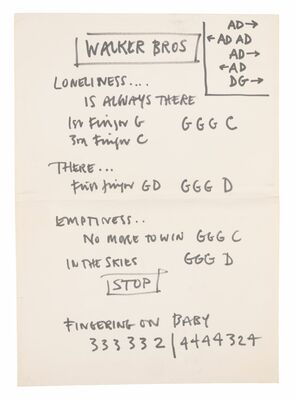 WALKER BROS
AD→
←AD AD
AD→
←AD
DG→
LONELINESS....
IS ALWAYS THERE
1st Finger G   G G G C
3rd Finger C
THERE...
First finger GD   GGG D
EMPTINESS..
NO MORE TO WIN   GGG C
IN THE SKIES   GGG D
STOP
FINGERING ON BABY
333 332 | 4444324